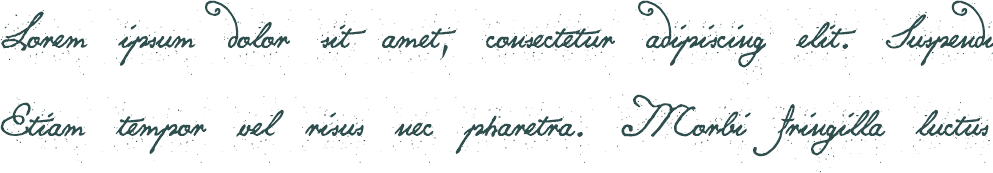 Lorem ipsum dolor sit amet, consectetur adipiscing elit. Suspendi
Etiam tempor vel risus nec pharetra. Morbi fringilla luctus